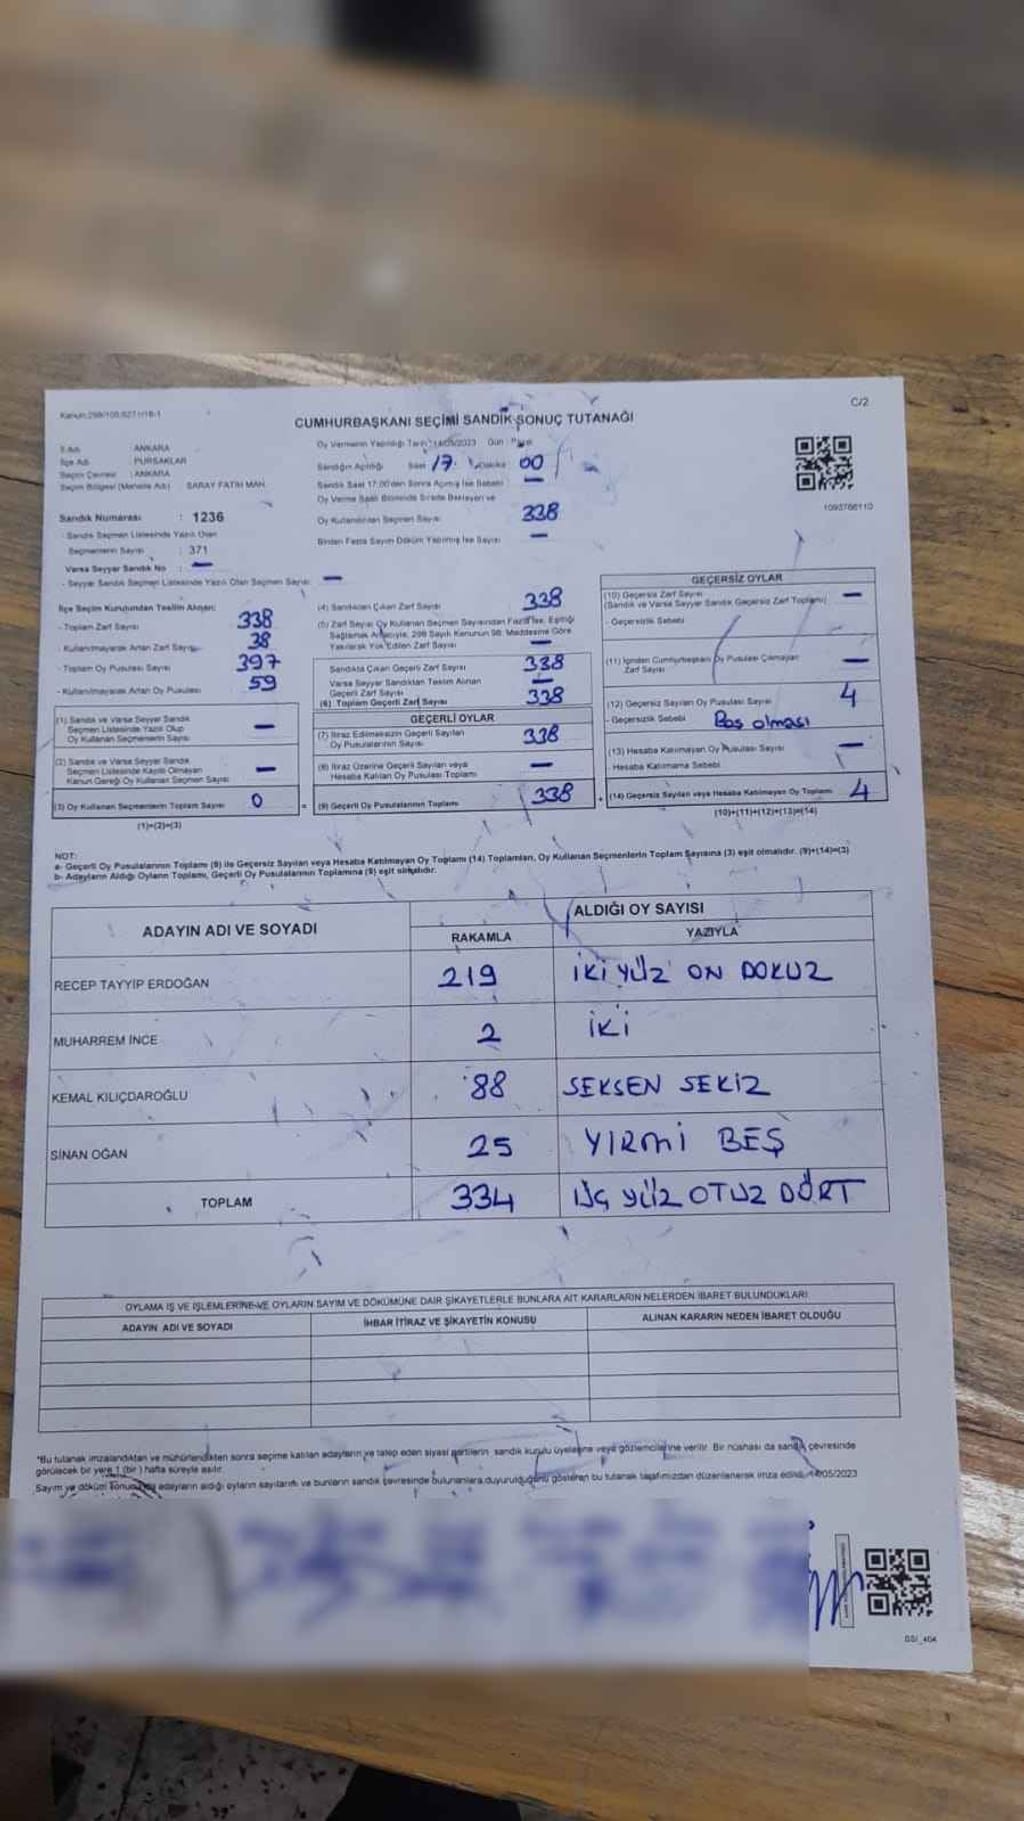 Kanun:298/105,6271/18-1
C/2
CUMHURBAŞKANI SEÇİMİ SANDIK SONUÇ TUTANAĞI
İl Adı : ANKARA
İlçe Adı : PURSAKLAR
Seçim Çevresi : ANKARA
Seçim Bölgesi (Mahalle Adı) SARAY FATİH MAH.
Sandık Numarası : 1236
Sandık Seçmen Listesinde Yazılı Olan
Seçmenlerin Sayısı : 371
Varsa Seyyar Sandık No : -
- Seyyar Sandık Seçmen Listesinde Yazılı Olan Seçmen Sayısı -
Oy Vermenin Yapıldığı Tarih 14/05/2023 Gün : Pazar
Sandığın Açıldığı Saat 17 Dakika 00
Sandık Saat 17:00'den Sonra Açılmış İse Sebebi -
Oy Verme Saati Bitiminde Sırada Bekleyen ve
Oy Kullandırılan Seçmen Sayısı 338
Birden Fazla Sayım Döküm Yapılmış İse Sayısı -
1093766110
İlçe Seçim Kurulundan Teslim Alınan:
- Toplam Zarf Sayısı 338
- Kullanılmayarak Artan Zarf Sayısı 38
- Toplam Oy Pusulası Sayısı 397
- Kullanılmayarak Artan Oy Pusulası 59
(1) Sandık ve Varsa Seyyar Sandık
Seçmen Listesinde Yazılı Olup
Oy Kullanan Seçmenlerin Sayısı -
(2) Sandık ve Varsa Seyyar Sandık
Seçmen Listesinde Kayıtlı Olmayan
Kanun Gereği Oy Kullanan Seçmen Sayısı -
(3) Oy Kullanan Seçmenlerin Toplam Sayısı 0
(1)+(2)=(3)
(4) Sandıktan Çıkan Zarf Sayısı 338
(5) Zarf Sayısı Oy Kullanan Seçmen Sayısından Fazla İse, Eşitliği
Sağlamak Amacıyla, 298 Sayılı Kanunun 98. Maddesine Göre
Yakılarak Yok Edilen Zarf Sayısı -
Sandıkta Çıkan Geçerli Zarf Sayısı 338
Varsa Seyyar Sandıktan Teslim Alınan
Geçerli Zarf Sayısı -
(6) Toplam Geçerli Zarf Sayısı 338
GEÇERLİ OYLAR
(7) İtiraz Edilmeksizin Geçerli Sayılan
Oy Pusulalarının Sayısı 338
(8) İtiraz Üzerine Geçerli Sayılan veya
Hesaba Katılan Oy Pusulası Toplamı -
(9) Geçerli Oy Pusulalarının Toplamı 338
GEÇERSİZ OYLAR
(10) Geçersiz Zarf Sayısı
(Sandık ve Varsa Seyyar Sandık Geçersiz Zarf Toplamı) -
- Geçersizlik Sebebi
(11) İçinden Cumhurbaşkanı Oy Pusulası Çıkmayan
Zarf Sayısı -
(12) Geçersiz Sayılan Oy Pusulası Sayısı 4
- Geçersizlik Sebebi Boş olması
(13) Hesaba Katılmayan Oy Pusulası Sayısı -
- Hesaba Katılmama Sebebi
(14) Geçersiz Sayılan veya Hesaba Katılmayan Oy Toplamı 4
(10)+(11)+(12)+(13)=(14)
NOT:
a- Geçerli Oy Pusulalarının Toplamı (9) ile Geçersiz Sayılan veya Hesaba Katılmayan Oy Toplamı (14) Toplamları, Oy Kullanan Seçmenlerin Toplam Sayısına (3) eşit olmalıdır. (9)+(14)=(3)
b- Adayların Aldığı Oyların Toplamı, Geçerli Oy Pusulalarının Toplamına (9) eşit olmalıdır.
ADAYIN ADI VE SOYADI
ALDIĞI OY SAYISI
RAKAMLA YAZIYLA
RECEP TAYYİP ERDOĞAN 219 İKİ YÜZ ON DOKUZ
MUHARREM İNCE 2 İKİ
KEMAL KILIÇDAROĞLU 88 SEKSEN SEKİZ
SİNAN OĞAN 25 YİRMİ BEŞ
TOPLAM 334 ÜÇ YÜZ OTUZ DÖRT
OYLAMA İŞ VE İŞLEMLERİNE VE OYLARIN SAYIM VE DÖKÜMÜNE DAİR ŞİKAYETLERLE BUNLARA AİT KARARLARIN NELERDEN İBARET BULUNDUKLARI
ADAYIN ADI VE SOYADI İHBAR İTİRAZ VE ŞİKAYETİN KONUSU ALINAN KARARIN NEDEN İBARET OLDUĞU
*Bu tutanak imzalandıktan ve mühürlendikten sonra seçime katılan adayların ve talep eden siyasi partilerin sandık kurulu üyelerine veya gözlemcilerine verilir. Bir nüshası da sandık çevresinde
görülecek bir yere 1 (bir) hafta süreyle asılır.
Sayım ve döküm sonucunda adayların aldığı oyların sayılarını ve bunların sandık çevresinde bulunanlara duyurulduğunu gösteren bu tutanak tarafımızdan düzenlenerek imza edildi. 14/05/2023